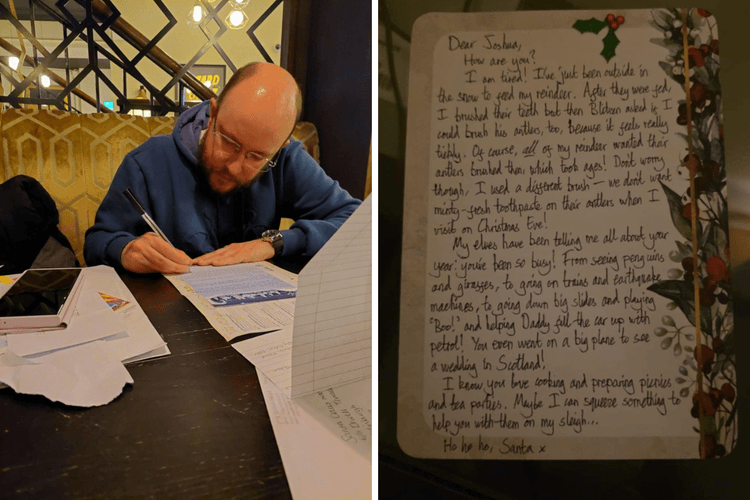 Dear Joshua,
How are you?
I am tired! I've just been outside in
the snow to feed my reindeer. After they were fed,
I brushed their teeth but then Blitzen asked if I
could brush his antlers, too, because it feels really
tickly. Of course, all of my reindeer wanted their
antlers brushed then, which took ages! Don't worry
though, I used a different brush – we don't want
minty-fresh toothpaste on their antlers when I
visit on Christmas Eve!
My elves have been telling me all about your
year: you've been so busy! From seeing penguins
and giraffes, to going on trains and earthquake
machines, to going down big slides and playing
"Boo!" and helping Daddy fill the car up with
petrol! You even went on a big plane to see
a wedding in Scotland!
I know you love cooking and preparing picnics
and tea parties. Maybe I can squeeze something to
help you with them on my sleigh...
Ho ho ho, Santa x